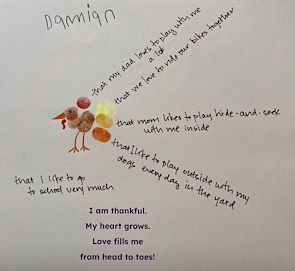 Damian
that my dad loves to play with me
a lot
that we love to ride our bikes together
that mom likes to play hide-and-seek
with me inside
that I like to play outside with my
dogs everyday in the yard
that I like to go
to school very much
I am thankful.
My heart grows.
Love fills me
from head to toes!